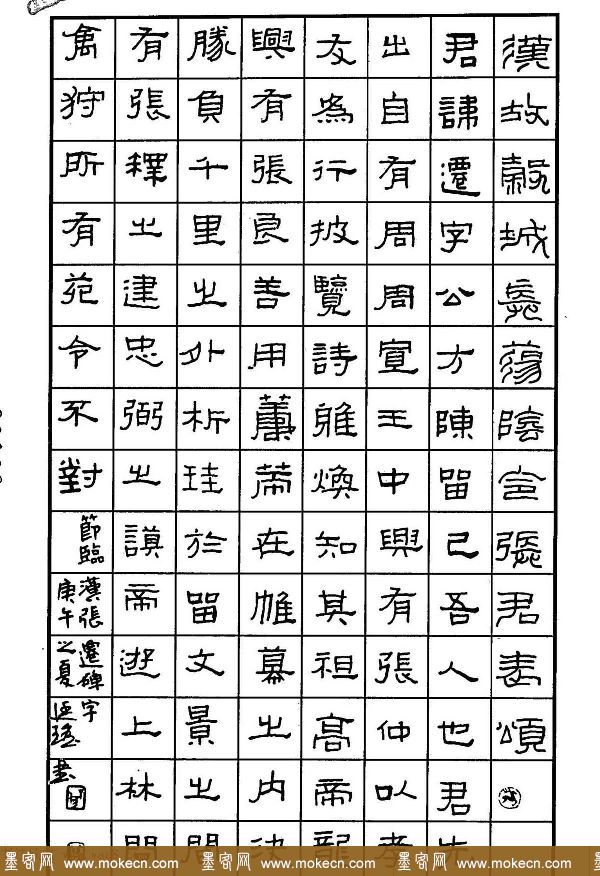 漢故穀城長蕩陰令張君表頌
君諱遷字公方陳留己吾人也君先
出自有周周宣王中興有張仲以孝
友為行披覽詩雅煥知其祖高帝龍
興有張良善用籌策在帷幕之內決
勝負千里之外析珪於留文景之間
有張釋之建忠弼之謨帝遊上林問
禽狩所有苑令不對
節臨
漢張遷碑字
庚午之夏
書
墨客网 www.mokecn.com 墨客网 www.mokecn.com 墨客网 www.mokecn.com